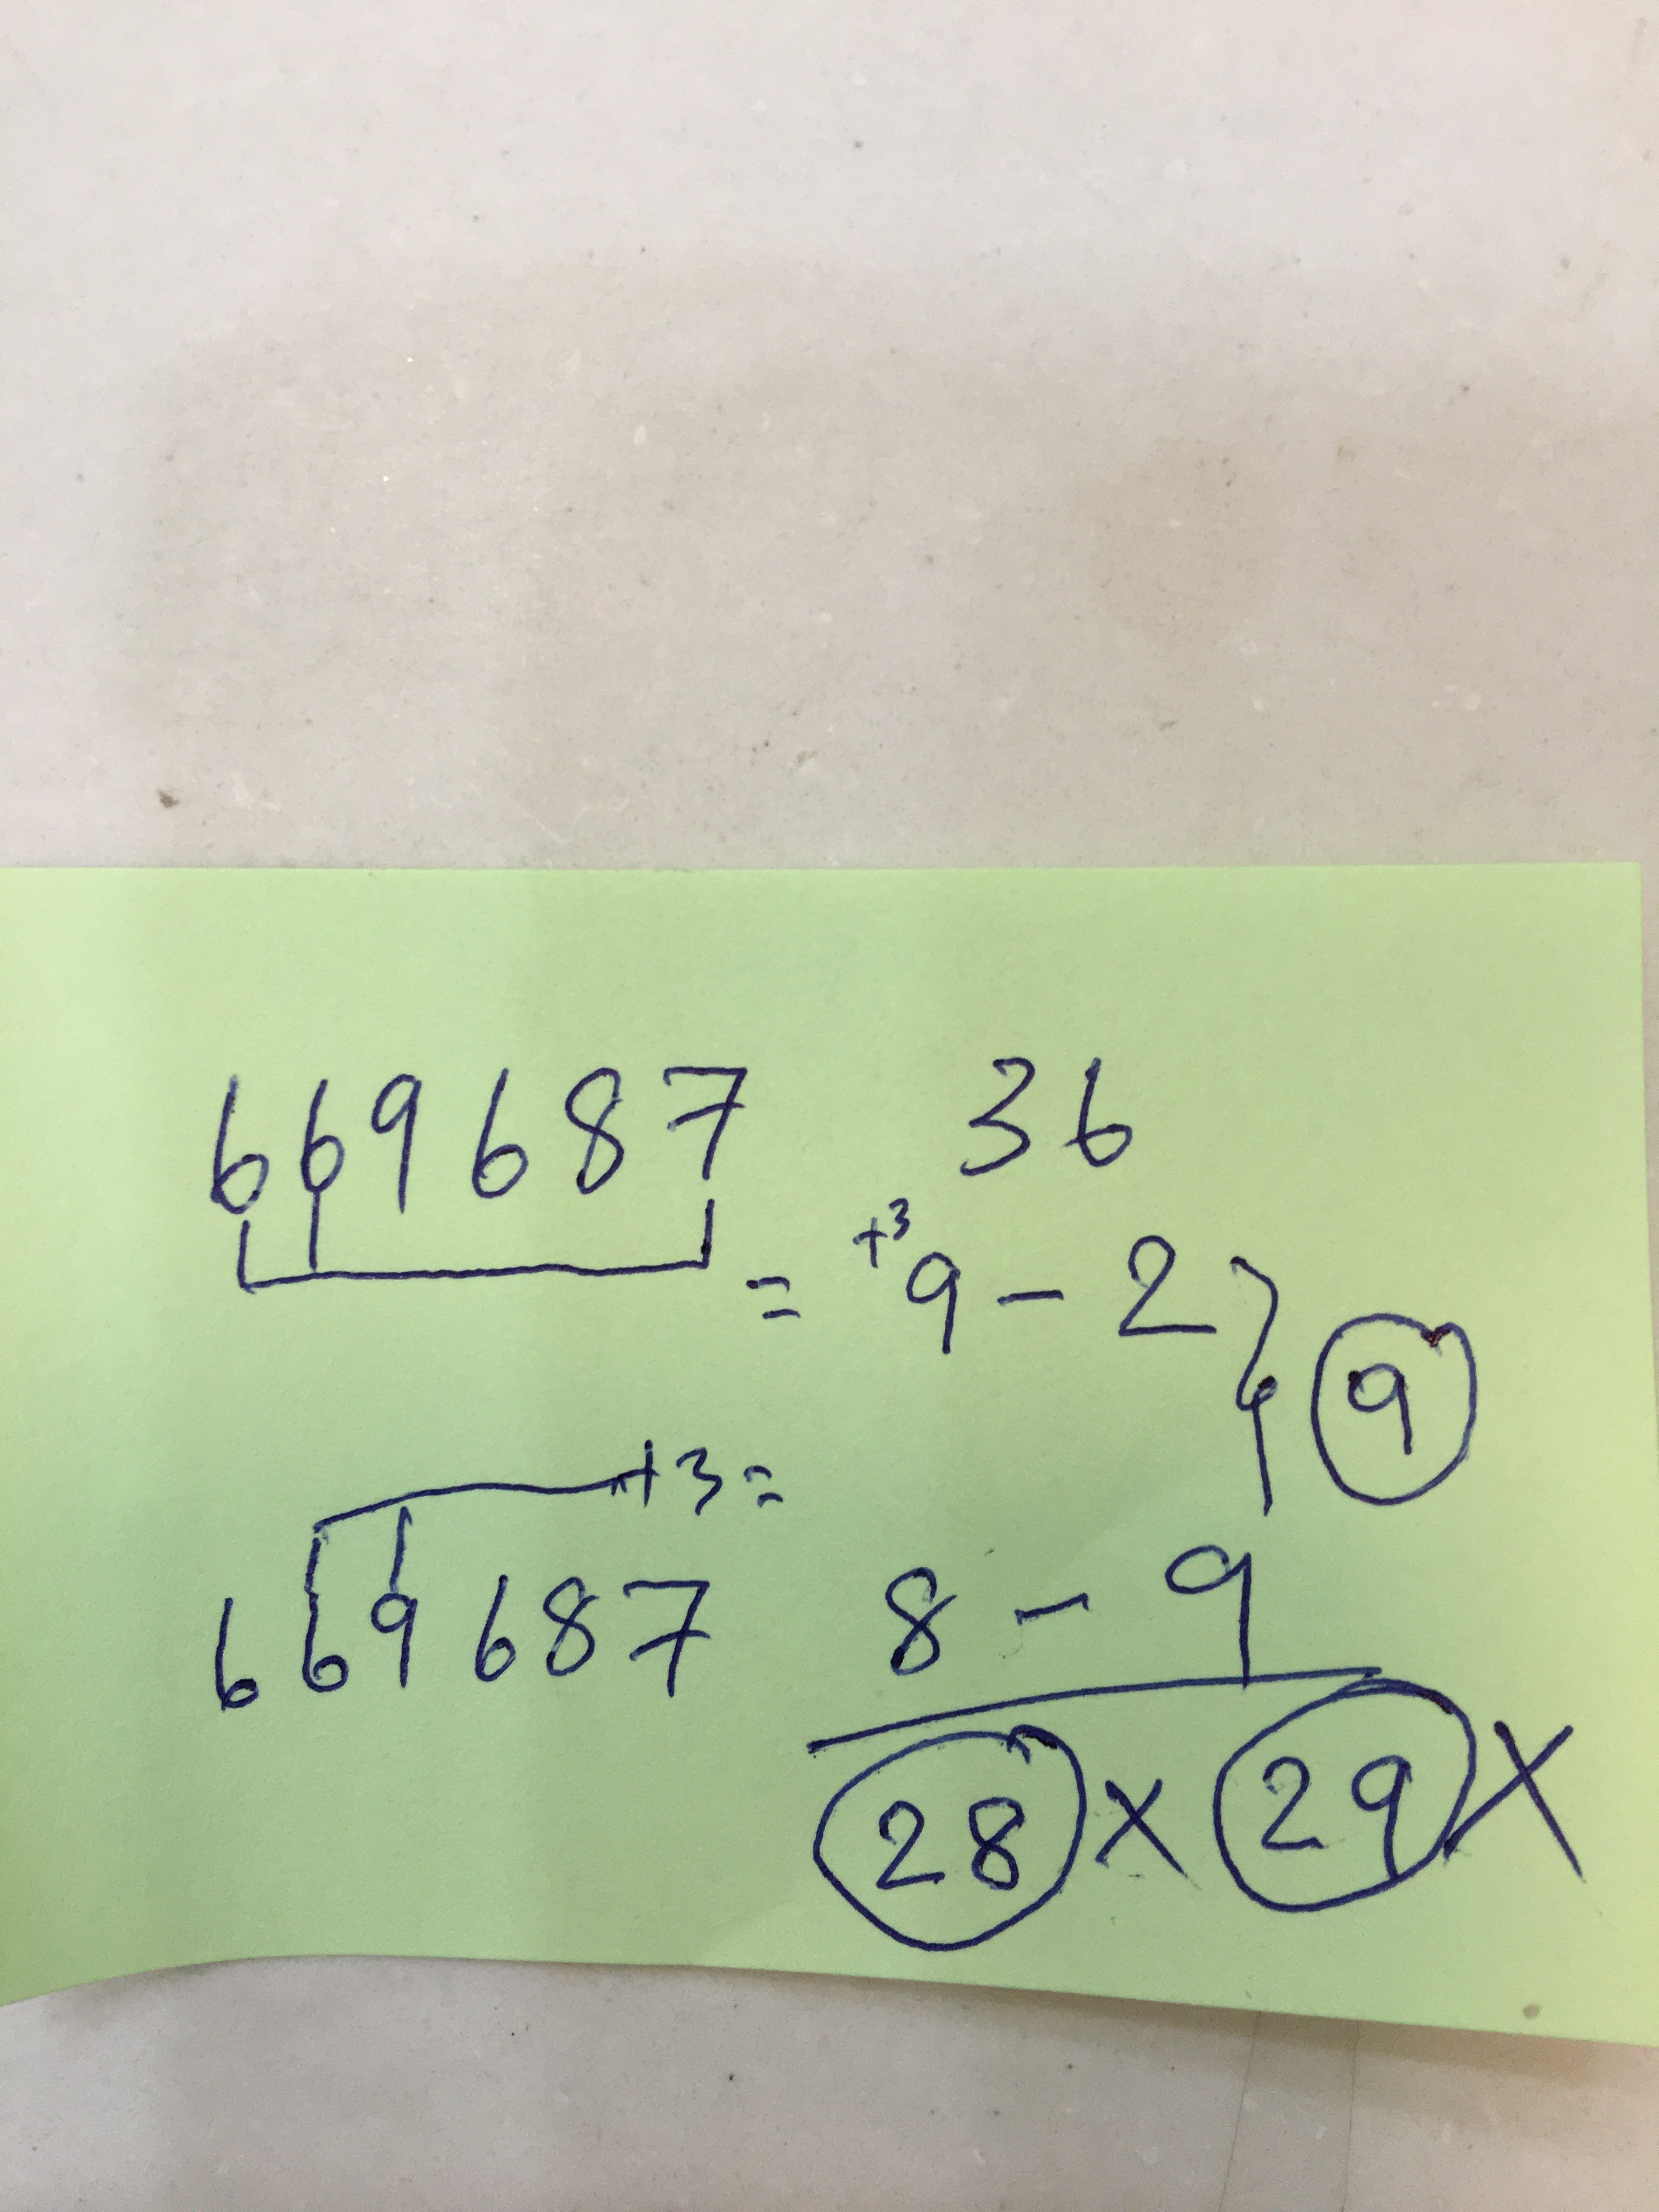 669687 36
= +3 9 - 2
9
+3=
669687 8 - 9
28 X 29 X